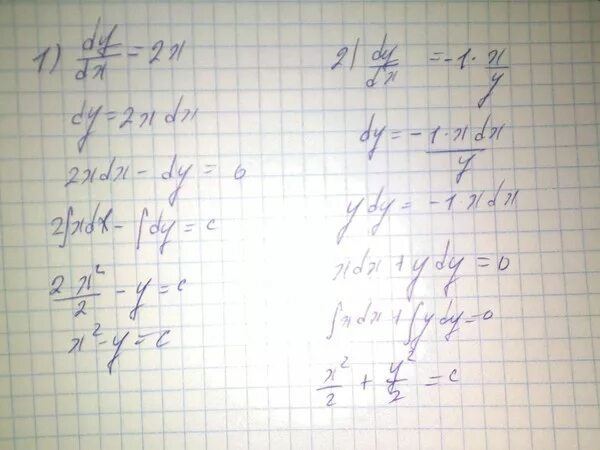 1) dy/dx = 2x
dy = 2x dx
2xdx - dy = 0
2∫xdx - ∫dy = c
2x²/2 - y = c
x² - y = c
2) dy/dx = -1 · x/y
dy = - 1·x dx/y
y dy = -1 x dx
xdx + y dy = 0
∫xdx + ∫y dy = 0
x²/2 + y²/2 = c